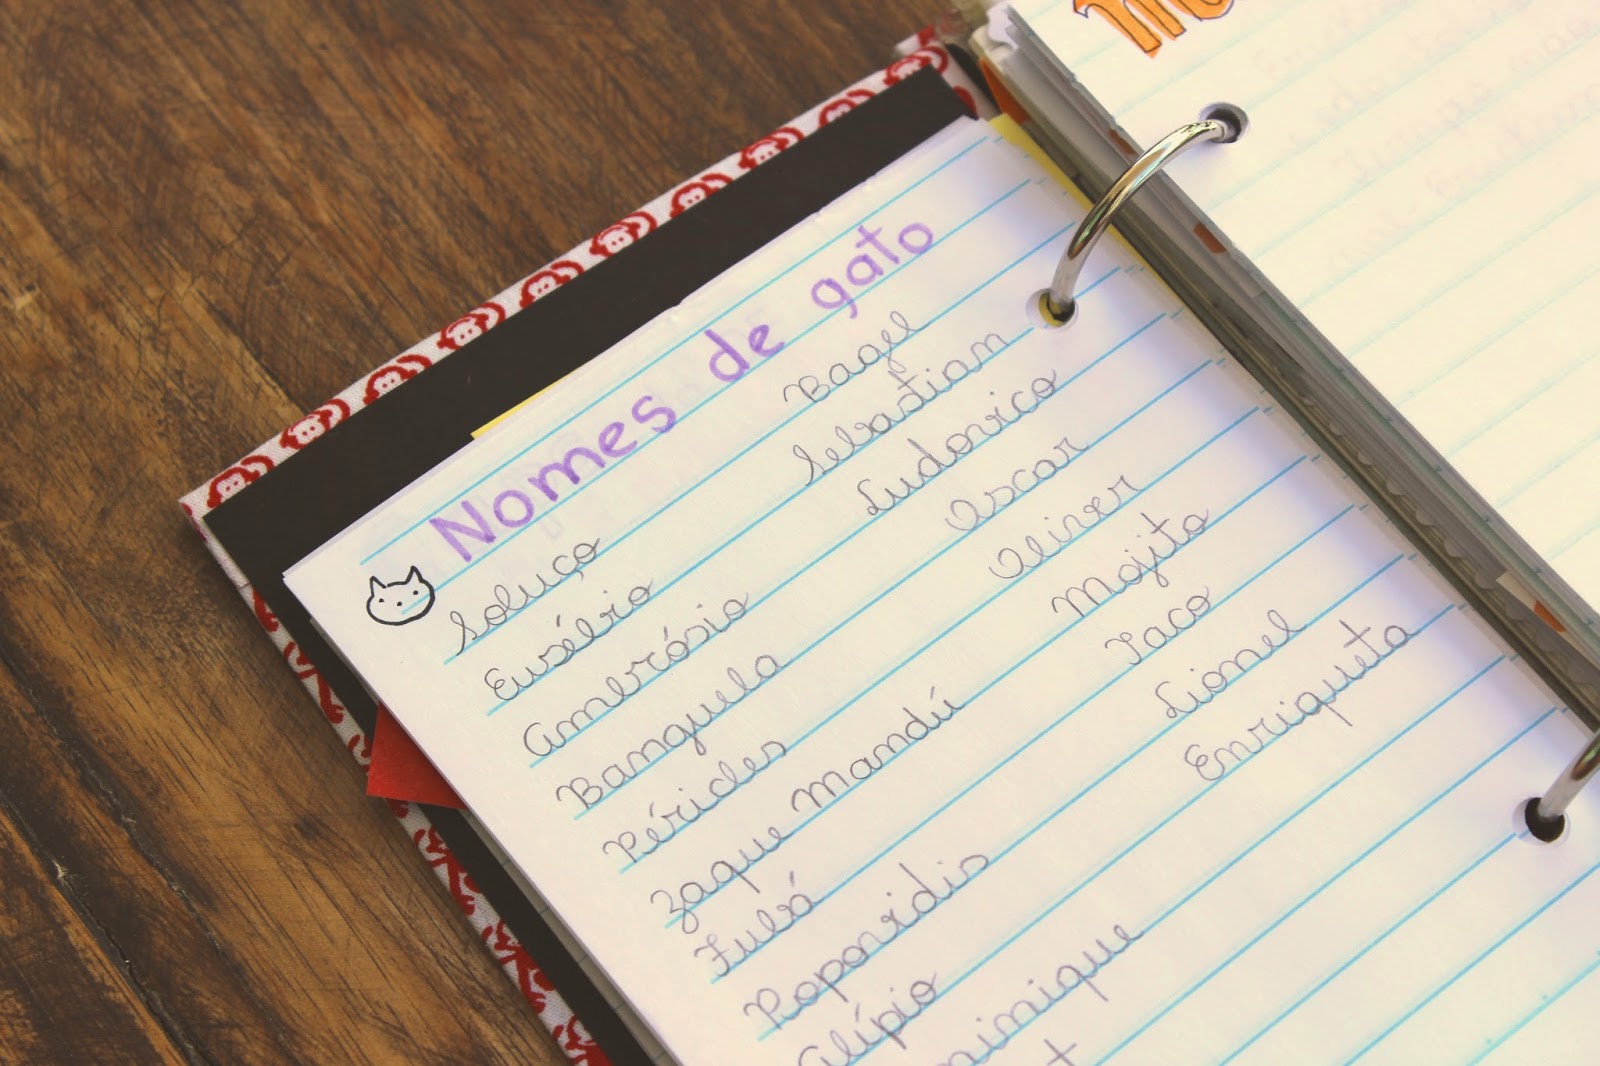 Nomes de gato
Soluço
Eusébio
Ambrósio
Banguela
Péricles
Zaque Mandú
Fubá
Alípio
Bagel
Sebastian
Ludovico
Oscar
Oliver
Mojito
Taco
Lionel
Enriqueta